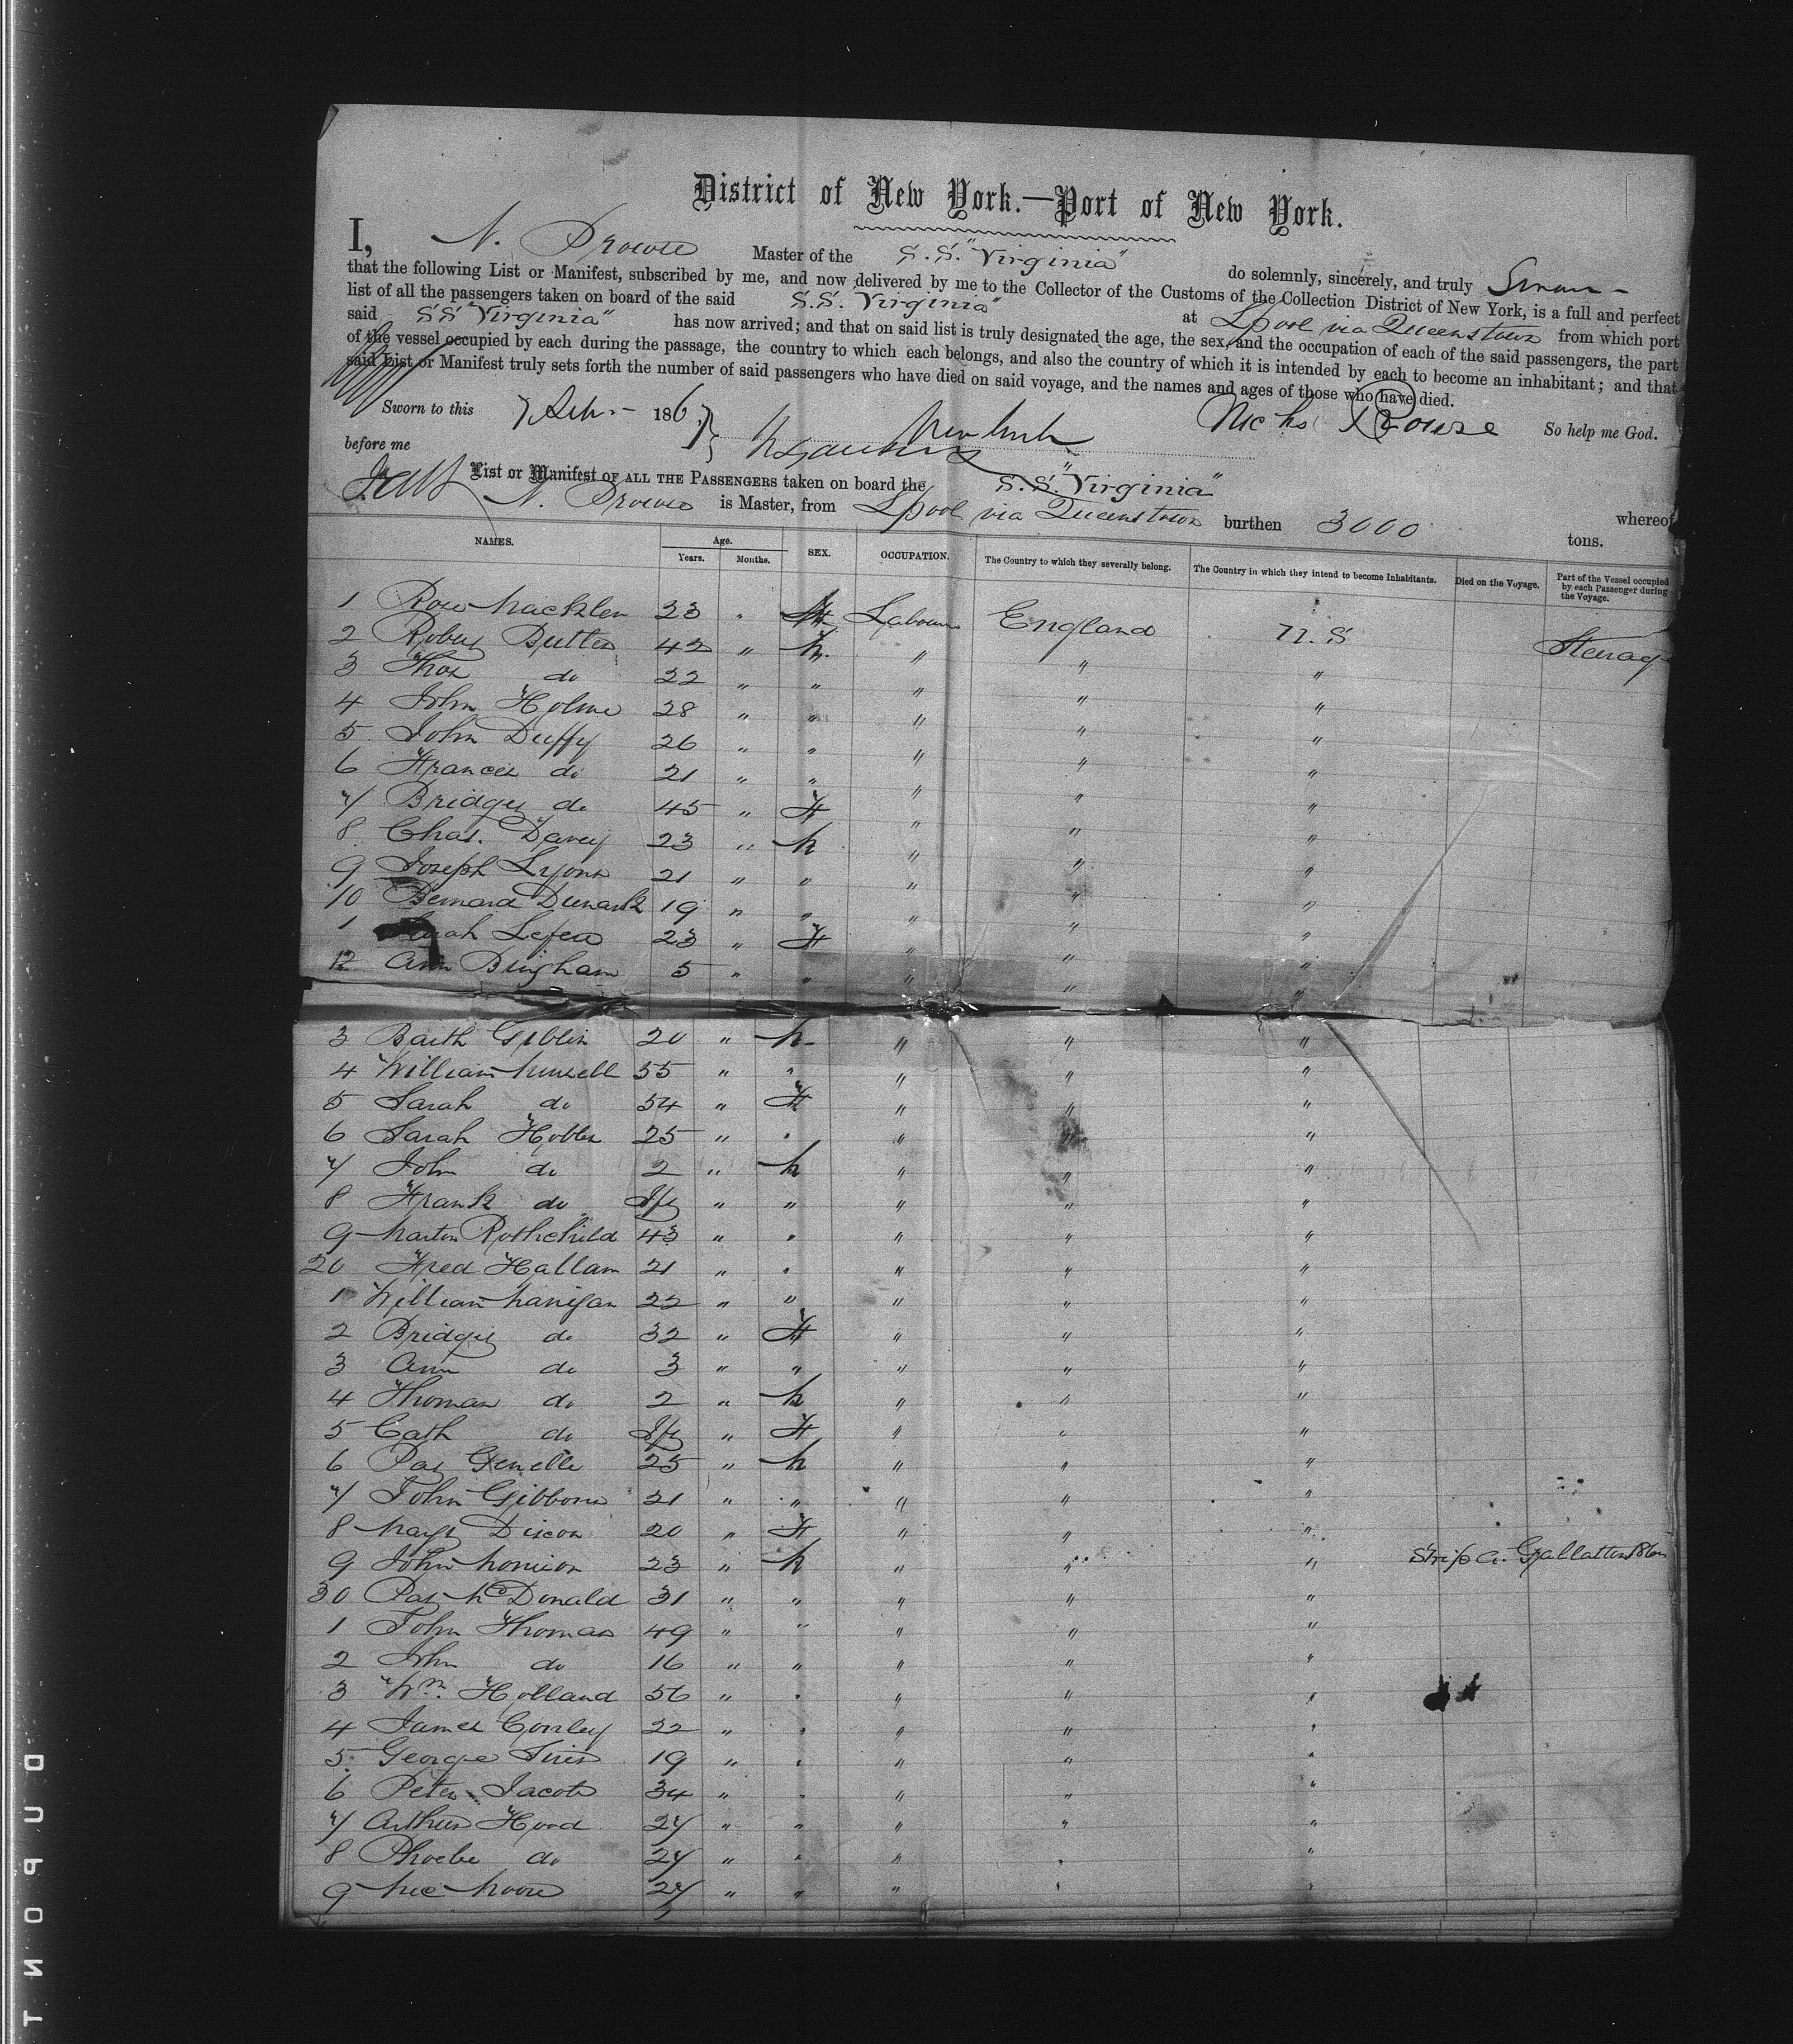 District of New York.—Port of New York.
I, N. Prowse Master of the S.S. "Virginia" do solemnly, sincerely, and truly Swear
that the following List or Manifest, subscribed by me, and now delivered by me to the Collector of the Customs of the Collection District of New York, is a full and perfect
list of all the passengers taken on board of the said S.S. Virginia" at Lpool via Queenstown from which port
said SS "Virginia" has now arrived; and that on said list is truly designated the age, the sex, and the occupation of each of the said passengers, the part
of the vessel occupied by each during the passage, the country to which each belongs, and also the country of which it is intended by each to become an inhabitant; and that
said List or Manifest truly sets forth the number of said passengers who have died on said voyage, and the names and ages of those who have died.
Sworn to this 7 186 Nichs Prowse So help me God.
before me
List or Manifest OF ALL THE PASSENGERS taken on board the S.S. "Virginia" whereof
N. Prowse is Master, from Lpool via Queenstown burthen 3000 tons.
NAMES. Age. Years. Months. SEX. OCCUPATION. The Country to which they severally belong. The Country in which they intend to become Inhabitants. Died on the Voyage. Part of the Vessel occupied by each Passenger during the Voyage.
1 23 " Labourer England U.S Steerage
2 Butter 42 " M. " " "
3 Thos do 22 " " " " "
4 John Holme 28 " " " " "
5 John Duffy 26 " " " " "
6 Frances do 21 " " " " "
7 Bridget do 45 " F " " "
8 Chas. Davey 23 " M " " "
9 Joseph Lyons 21 " " " " "
10 Bernard 19 " " " " "
1 Sarah 23 " F " " "
12 Ann Bingham 5 " " " " "
3 Barth Giblin 20 " M " " "
4 William 55 " " " " "
5 Sarah do 54 " F " " "
6 Sarah 25 " " " " "
7 John do 2 " M " " "
8 Frank do Inf " " " " "
9 Rothchild 43 " " " " "
20 Fred Hallam 21 " " " " "
1 William 22 " " " " "
2 Bridget do 32 " F " " "
3 Ann do 3 " " " " "
4 Thomas do 2 " M " " "
5 Cath do Inf " F " " "
6 Pat 25 " M " " "
7 John Gibbons 21 " " " " "
8 Margt Dixon 20 " F " " "
9 John 23 " M " " "
30 Pat McDonald 31 " " " " "
1 John Thomas 49 " " " " "
2 John do 16 " " " " "
3 Wm. Holland 56 " " " " "
4 James Conley 22 " " " " "
5 George 19 " " " " "
6 Peter Jacobs 34 " " " " "
7 Arthur Hood 27 " " " " "
8 Phoebe do 27 " " " " "
9 Moore 27 " " " " "
DUPONT